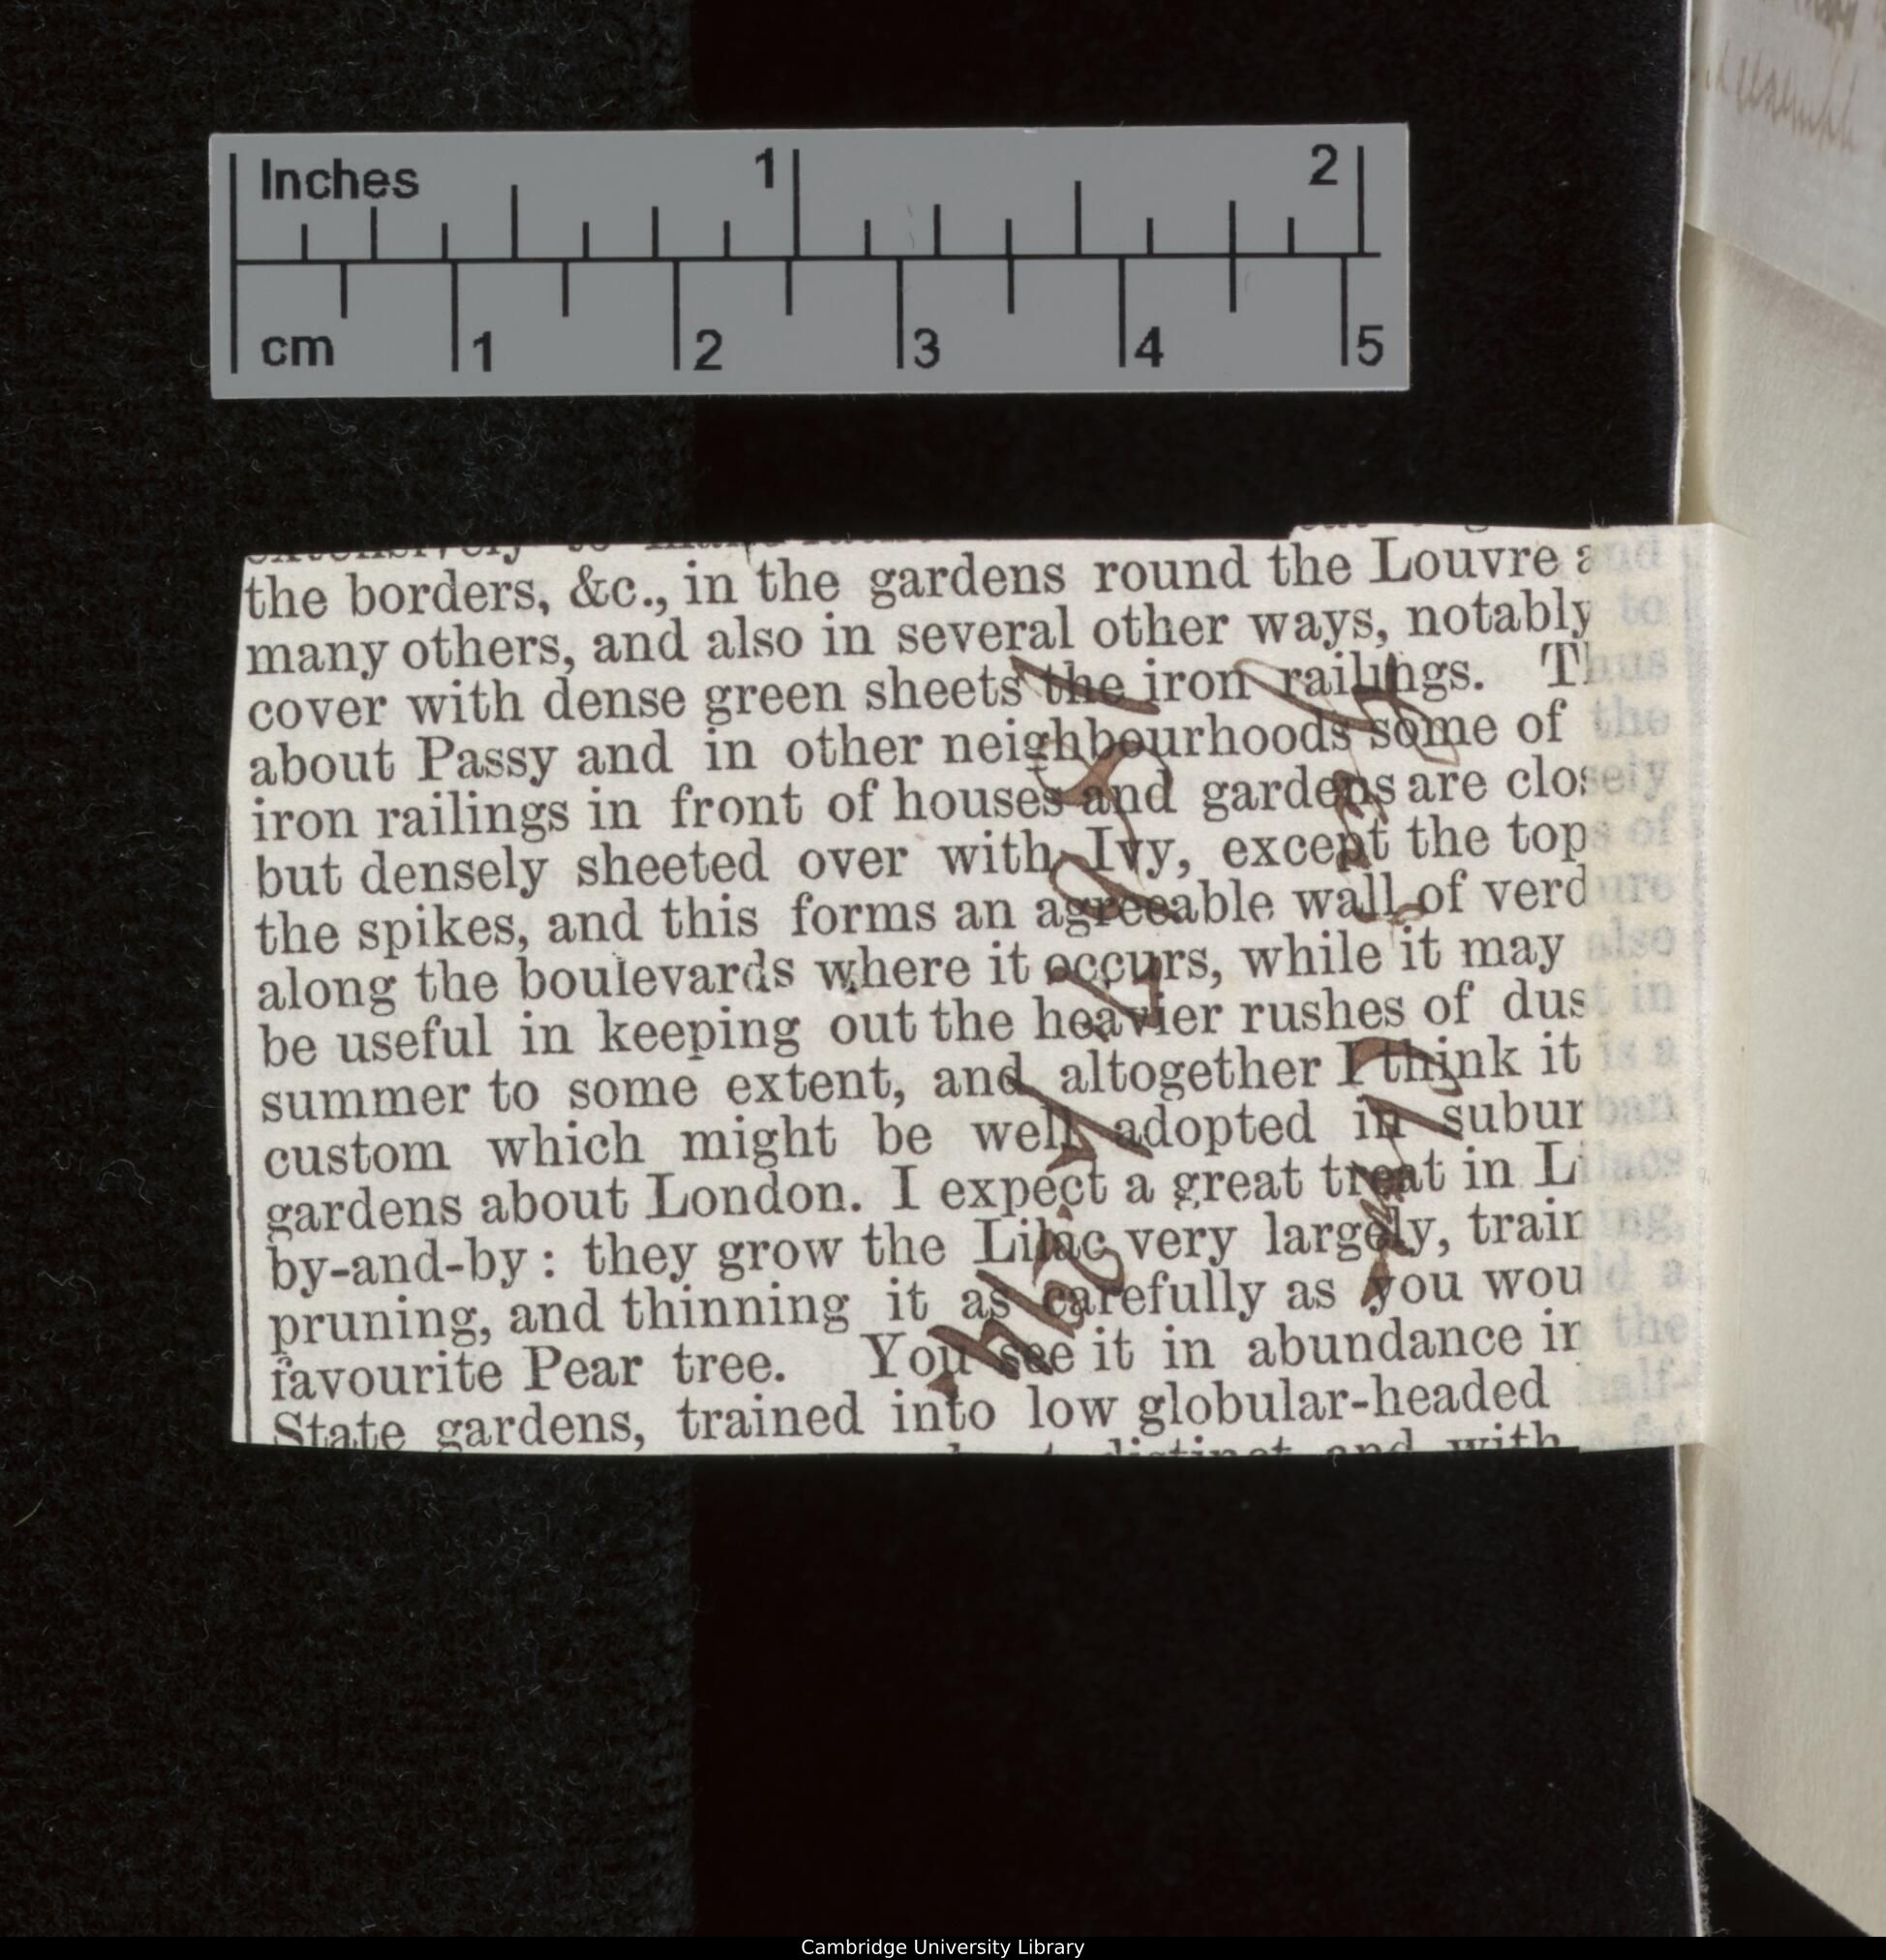 Inches 1 2
cm 1 2 3 4 5
extensively to
the borders, &c., in the gardens round the Louvre and
many others, and also in several other ways, notably to
cover with dense green sheets the iron railings. Thus
about Passy and in other neighbourhoods some of the
iron railings in front of houses and gardens are closely
but densely sheeted over with Ivy, except the tops of
the spikes, and this forms an agreeable wall of verdure
along the boulevards where it occurs, while it may also
be useful in keeping out the heavier rushes of dust in
summer to some extent, and altogether I think it is a
custom which might be well adopted in suburban
gardens about London. I expect a great treat in Lilacs
by-and-by: they grow the Lilac very largely, training,
pruning, and thinning it as carefully as you would a
favourite Pear tree. You see it in abundance in the
State gardens, trained into low globular-headed half-
distinct and with
Cambridge University Library